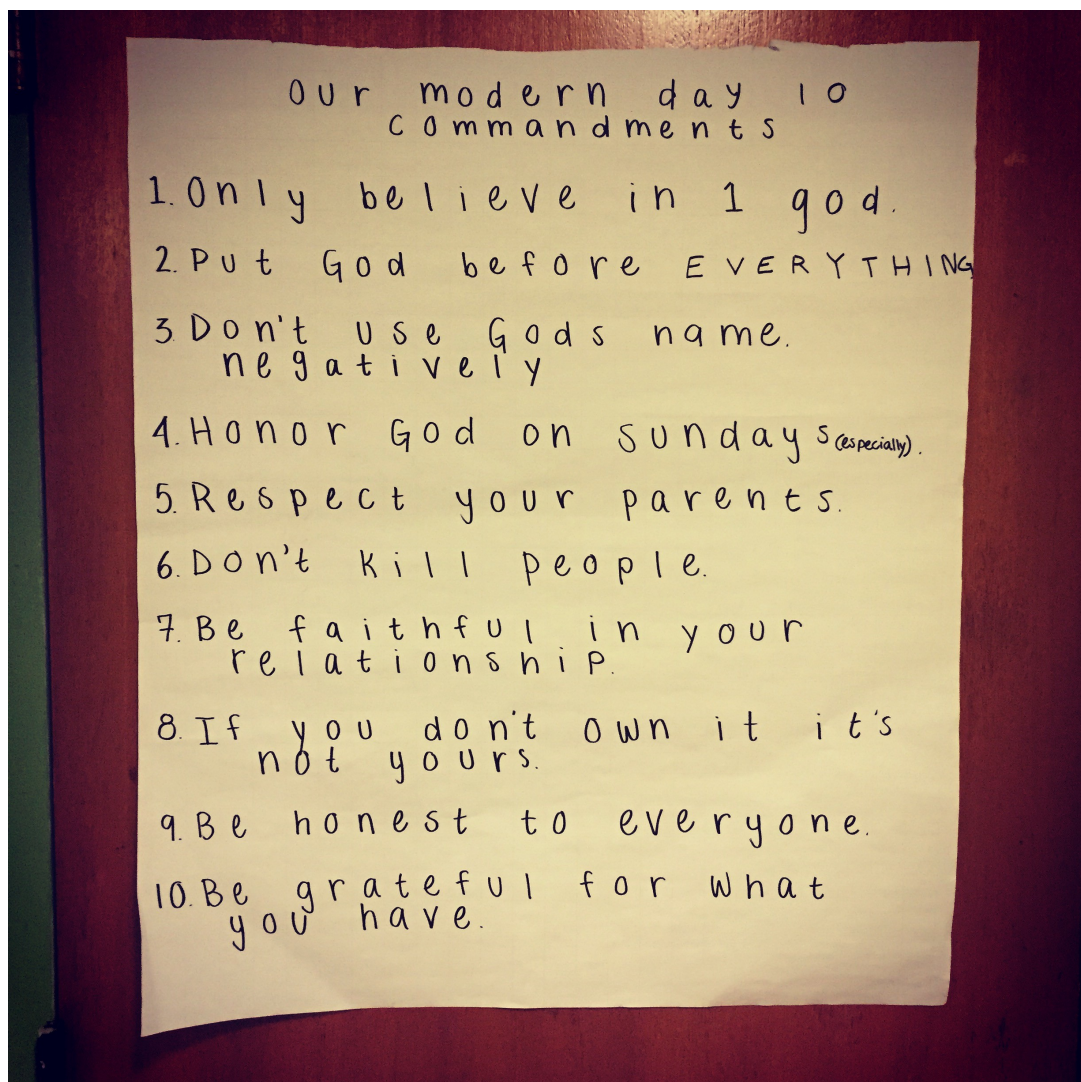 our modern day 10
commandments
1. Only believe in 1 god.
2. Put God before EVERYTHING
3. Don't use Gods name.
negatively
4. Honor God on sundays (especially).
5. Respect your parents.
6. Don't kill people.
7. Be faithful in your
relationship.
8. If you don't own it it's
not yours.
9. Be honest to everyone.
10. Be grateful for what
you have.